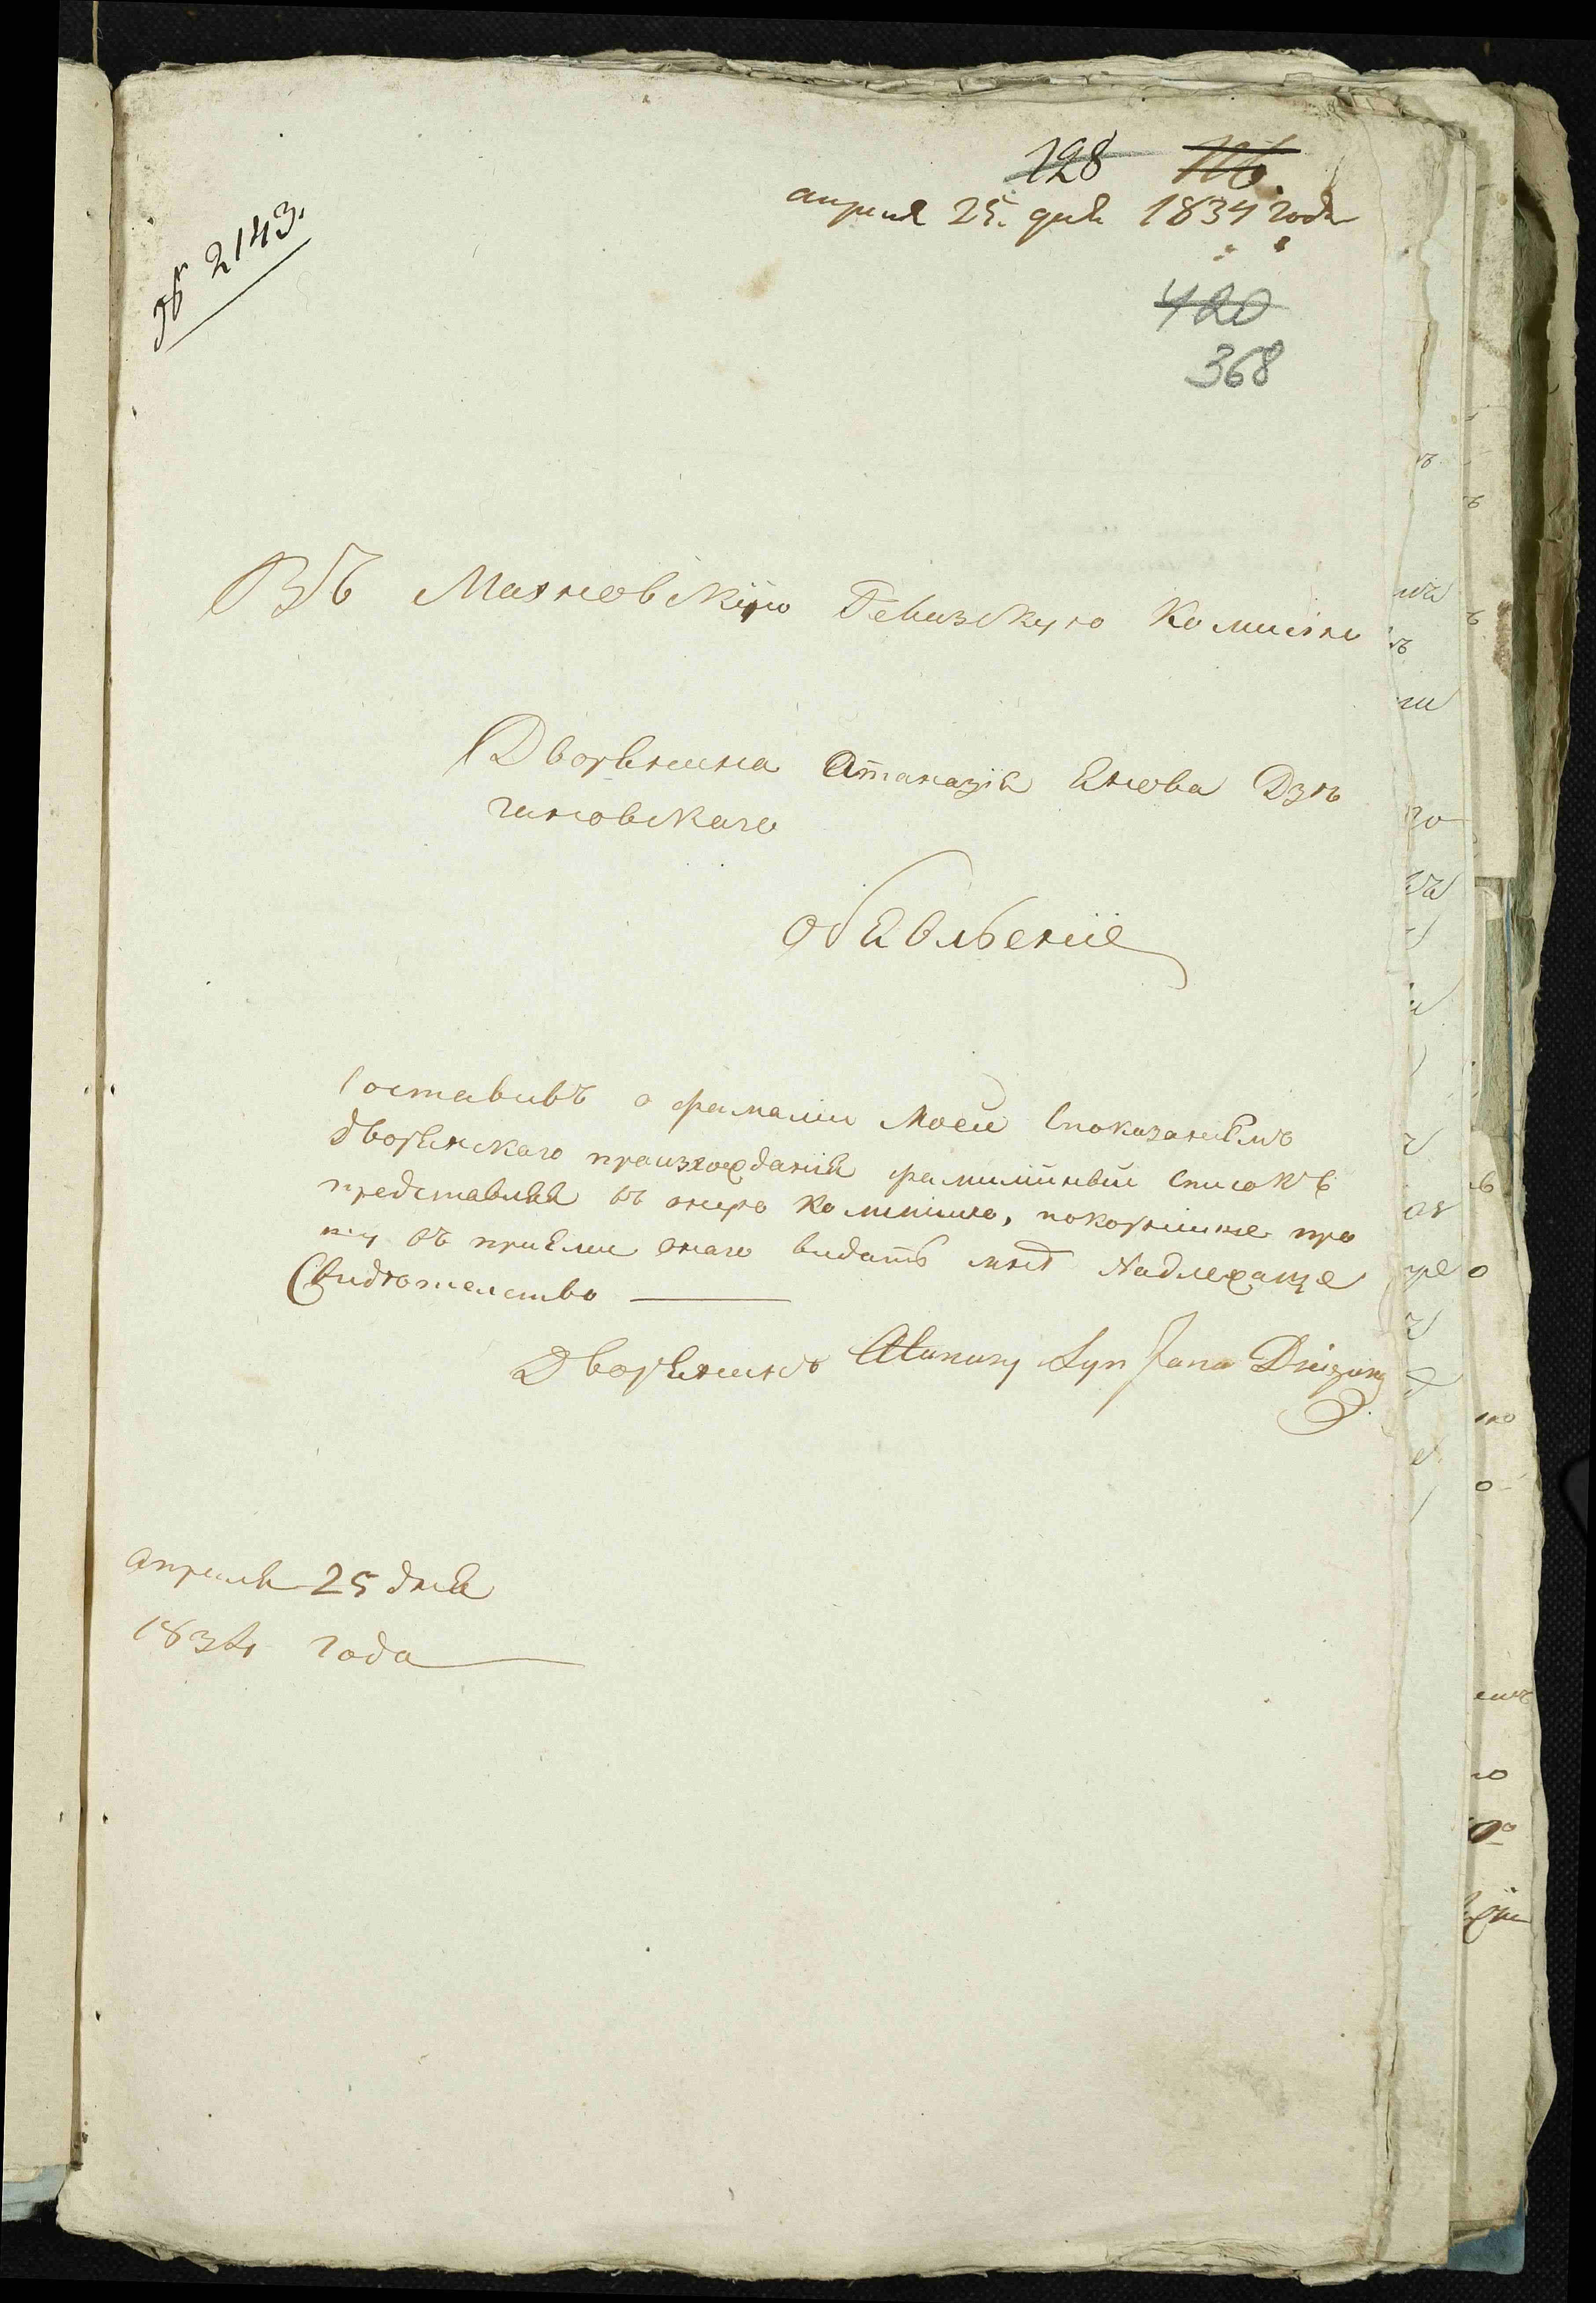 128 116.
апреля 25. дня 1834 года
№ 2143.
420
368
Въ Махновскую Ревизскую Комисию
Дворянина Атаназія Янова Дзѣ
гановскаго
обявленіе
Составивъ о фамилии Моей Споказаніемъ
дворянскаго произхожданія фамилійный Списокъ
представляя въ оную Комисию, покорнѣйше про
шу въ приемѣ онаго видать мнѣ Надлежаще
Свидѣтелство
Дворянинъ Atanazy Syn Jana
апреля 25 дня
1834 года